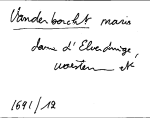 Vanderborcht maris
dame d'Elverdinge,
woesten etc
1691/12